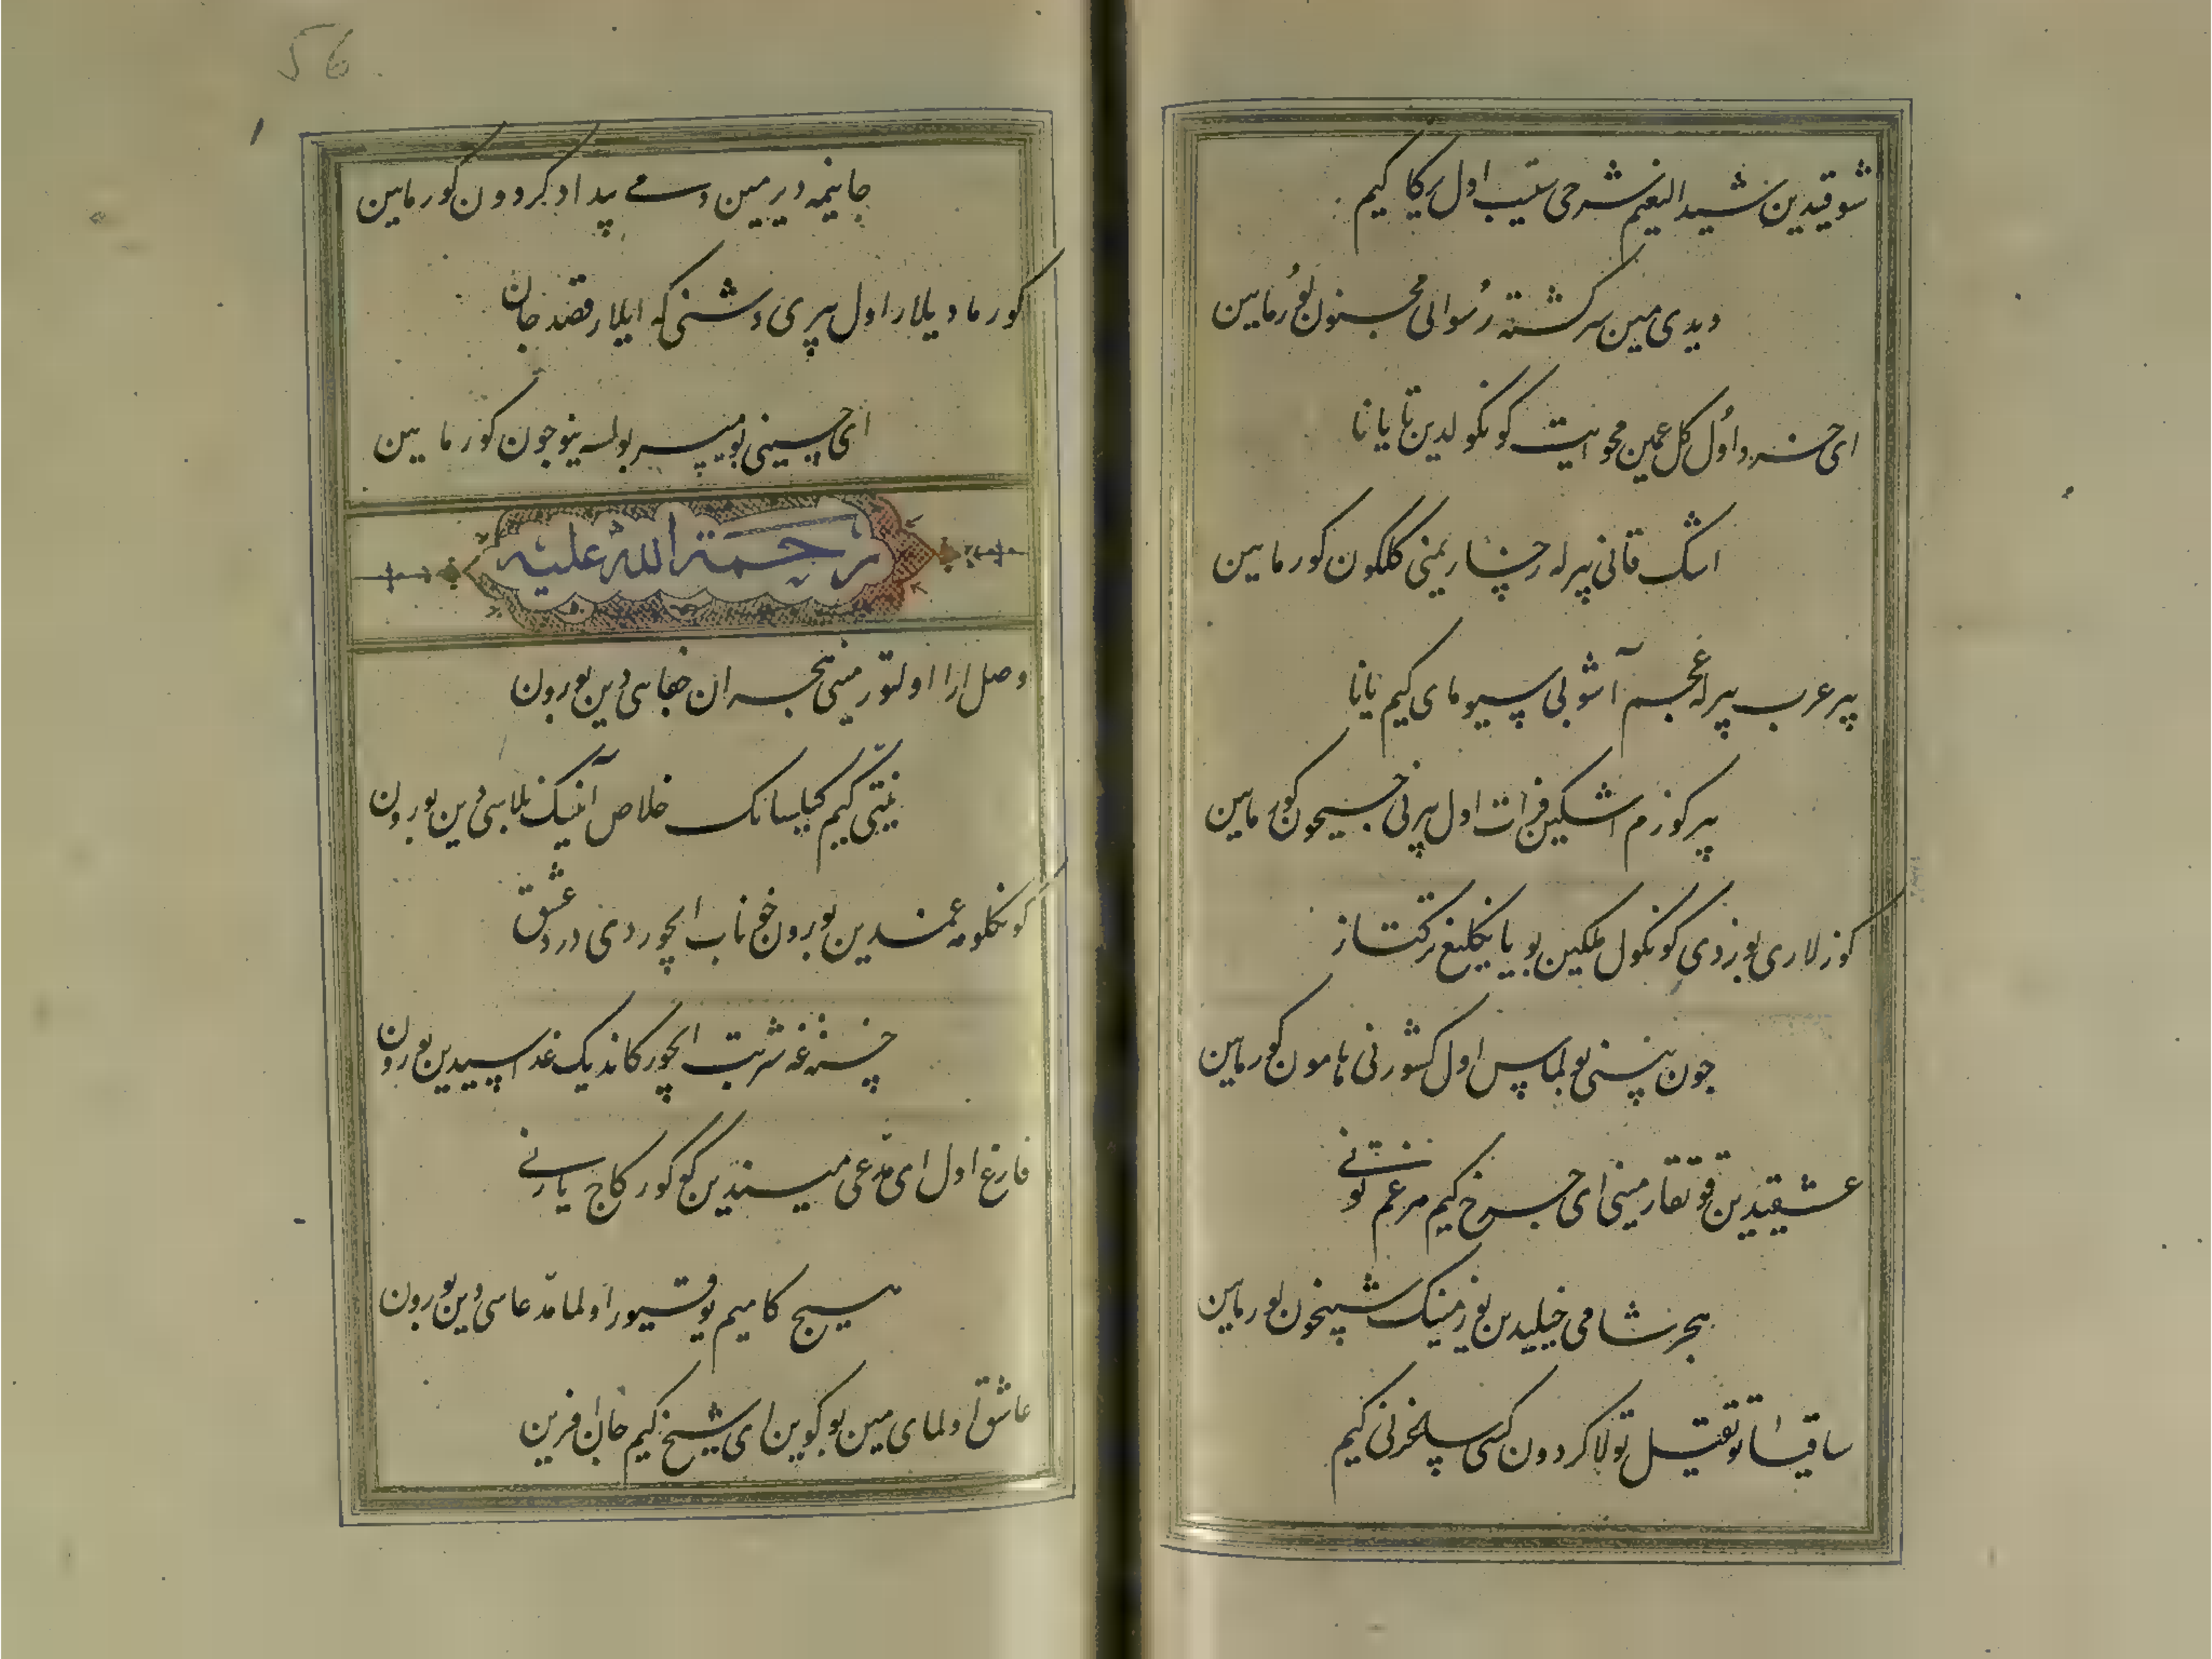 شوقیدین شیدالیغیم شرحی ایتیب اول یرکا کیم
دیدی مین سرکشته رسوالی مجنون بورماین
ای خسرو اول کل غمین محو ایت کونکولدین تا یانا
اشک قانی بیرله رخساریمنی کلکون کورماین
بیر عرب بیرله عجم آشوبی سیومای کیم یانا
بیر کوزم اشکین فرات اول بیرنی جیحون کورماین
کوزلاری بوزدی کونکول ملکین بو یانکلیغ ترکتاز
جون بیسنی بولماس اول کشورنی هامون کورماین
عشقیدین قوتقار مینی ای چرخ کیم مرغم تونی
هجر شامی خیلیدین یوز مینک شبیخون کورماین
ساقیا توتقیل تولا کردون کسی ساغرنی کیم
جانیمه دیرمین دمی بیداد کردون کورماین
کورما دیلار اول پری وشنی که ایلار قصد جان
ای حسینی بو میسر بولسه نیوجون کورماین
رحمة الله علیه
وصل ارا اولتور مینی هجران جفاسی دین بورون
ییتی کیم کیلسانک خلاص آنینک بلاسی دین بورون
کونکلومه غمدین بورون خوناب ایچوردی درد عشق
خسته غه شربت ایچورکاندیک غداسیدین بورون
فارغ اول ای مدعی میندین کو کورکاج یارنی
هیچ کامیم یوقتور اولما مدعاسی دین بورون
عاشق اولمای مین بوکوین ای شیخ کیم جان افرین
56